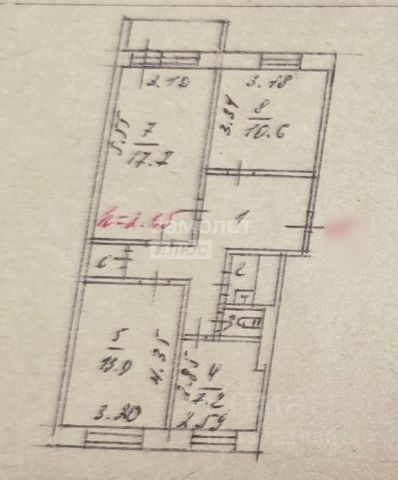 3.19
3.18
5.55
7
17.7
3.34
8
10.6
h=2.65
1
самолет
плюс
6
2
3
5
13.9
4.35
3.20
2.85
4
7.2
2.59